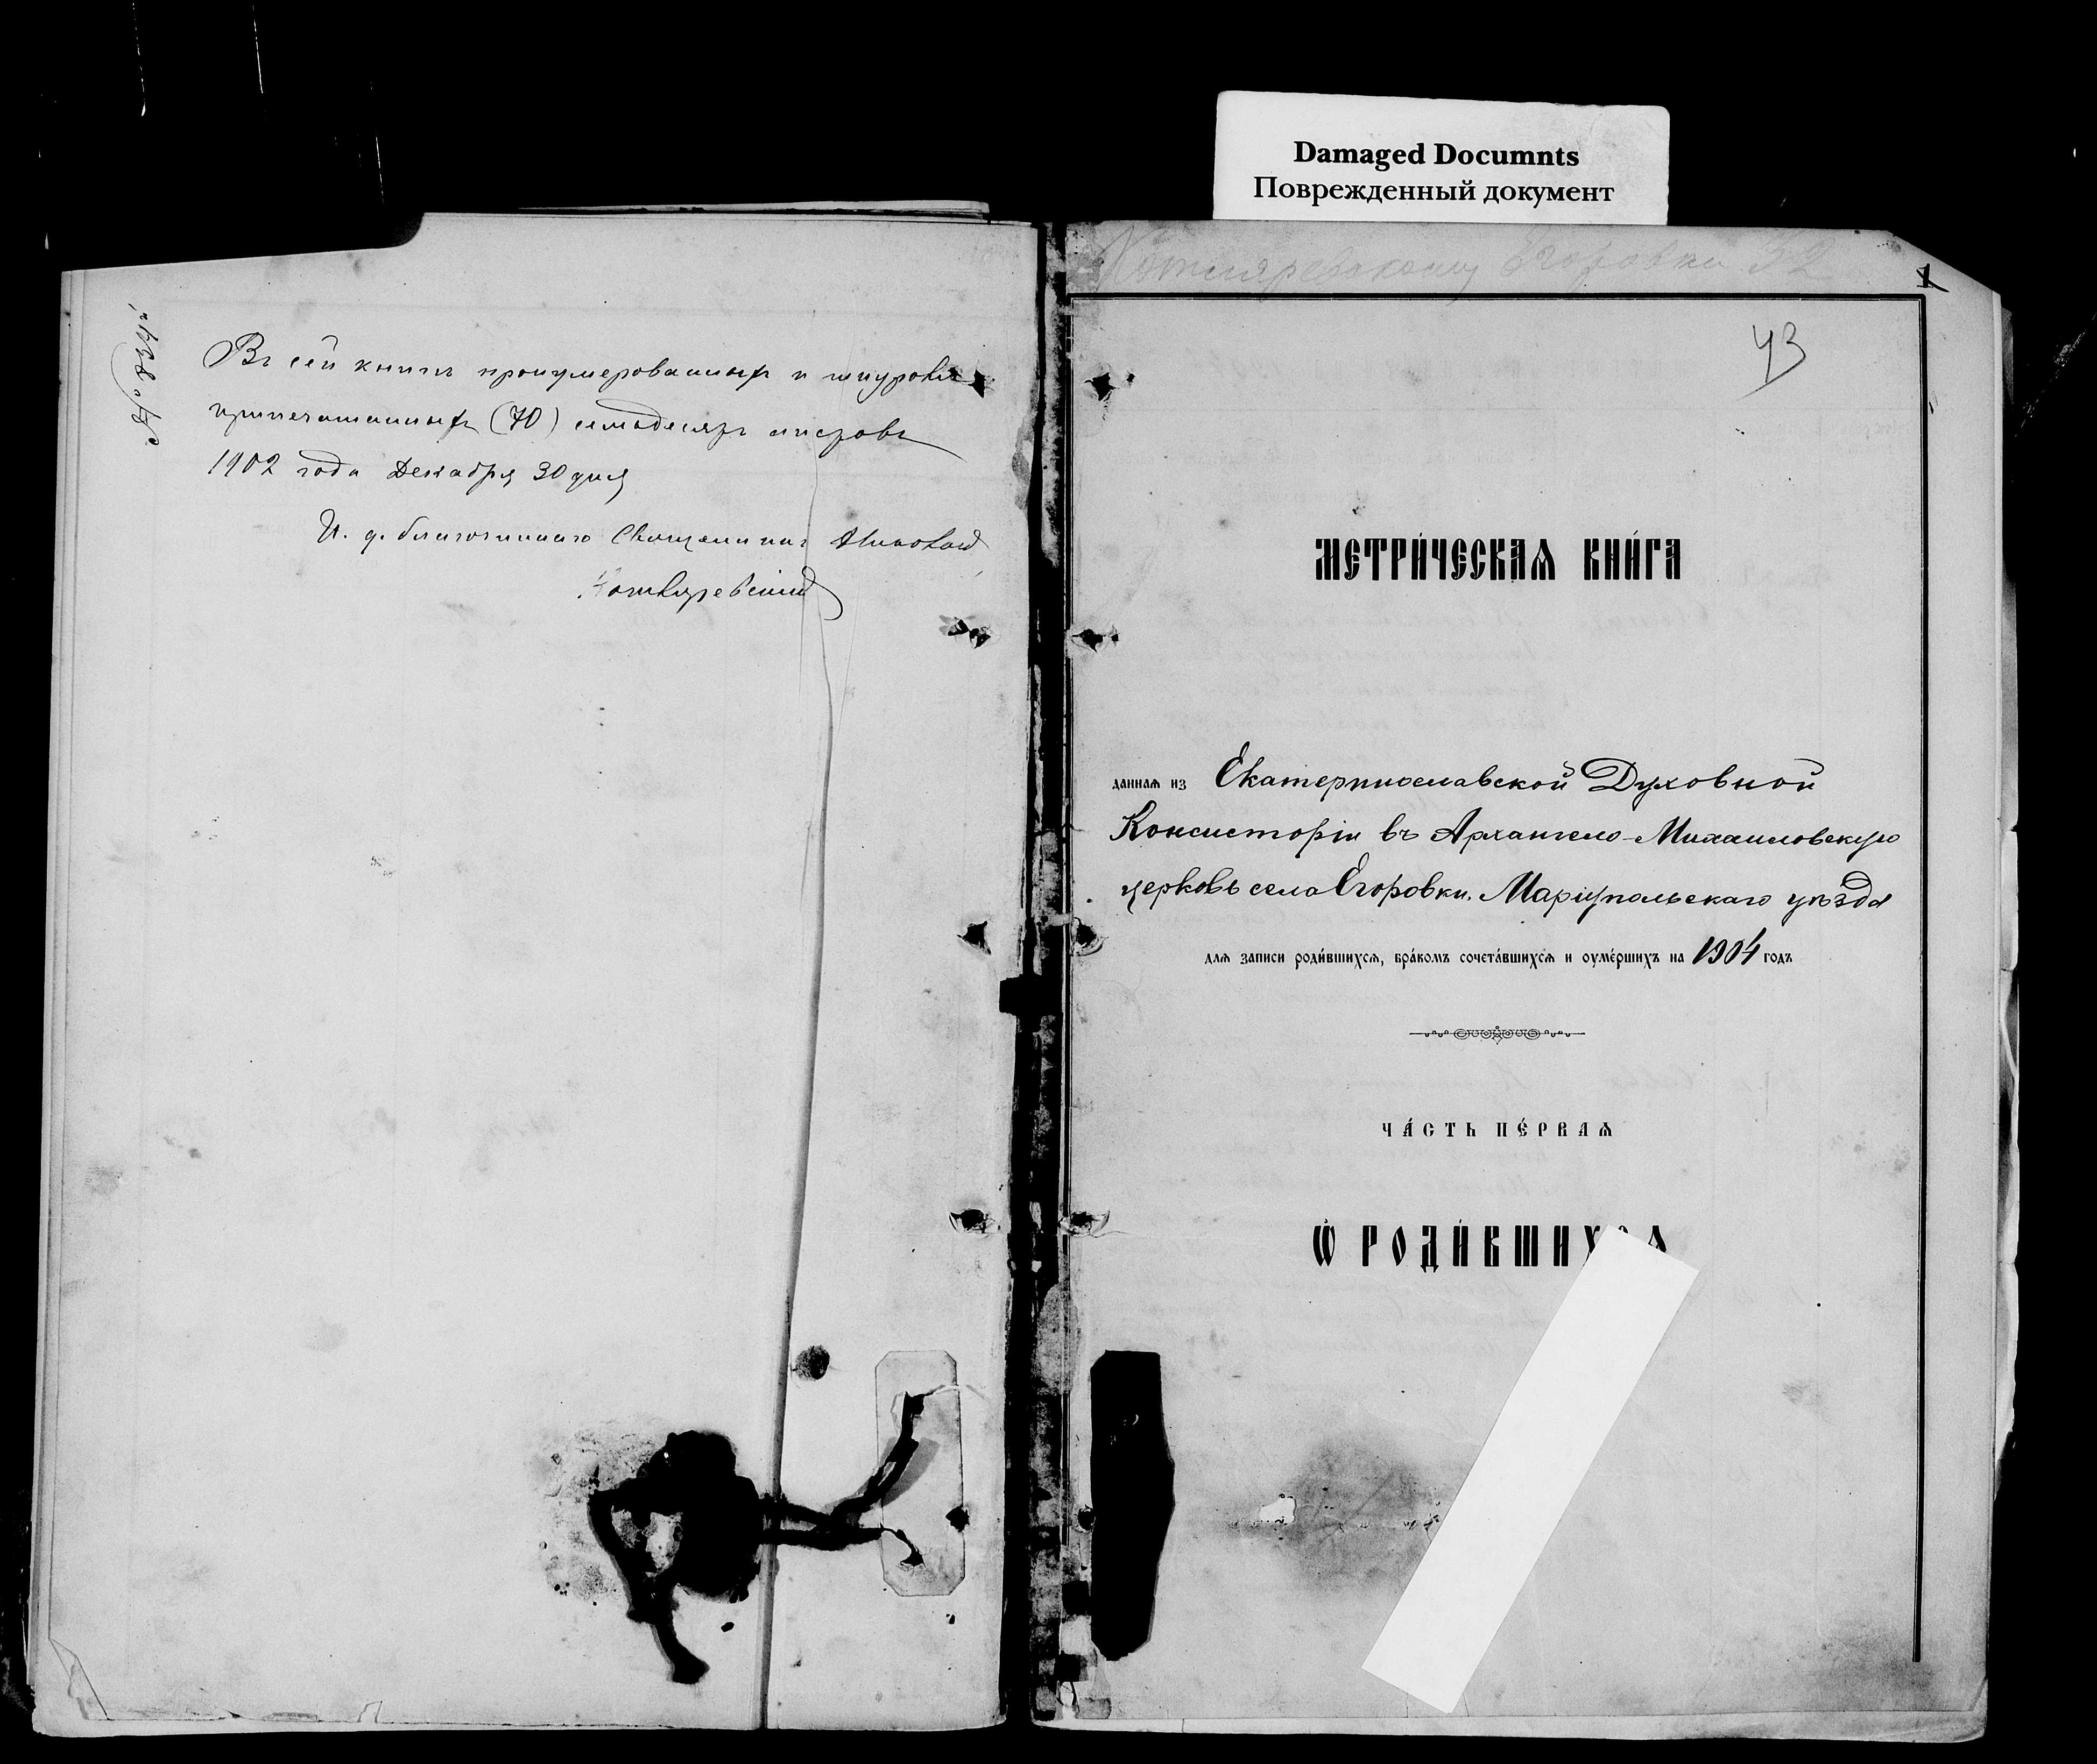 Damaged Documnts
Поврежденный документ
Въ сей книгѣ пронумерованныхъ и шнуров
припечатанныхъ (70) семьдесятъ листовъ
1902 года Декабря 30 дня
И. д. благочиннаго Священникъ Николай
Котляревский
Котляревскому Егоровки 32
1
43
МЕТРИ́ЧЕСКАѦ КНИ́ГА
даннаѧ из Екатеринославской Духовной
Консисторіи въ Архангело-Михаиловскую
церковь села Егоровки, Маріупольскаго уѣзда
длѧ записи роди́вшихсѧ, бра́комъ сочета́вшихсѧ и оуме́ршихъ на 1904 годъ
ЧА́СТЬ ПЕ́РВАѦ
Ѡ РОДИ́ВШИХСѦ